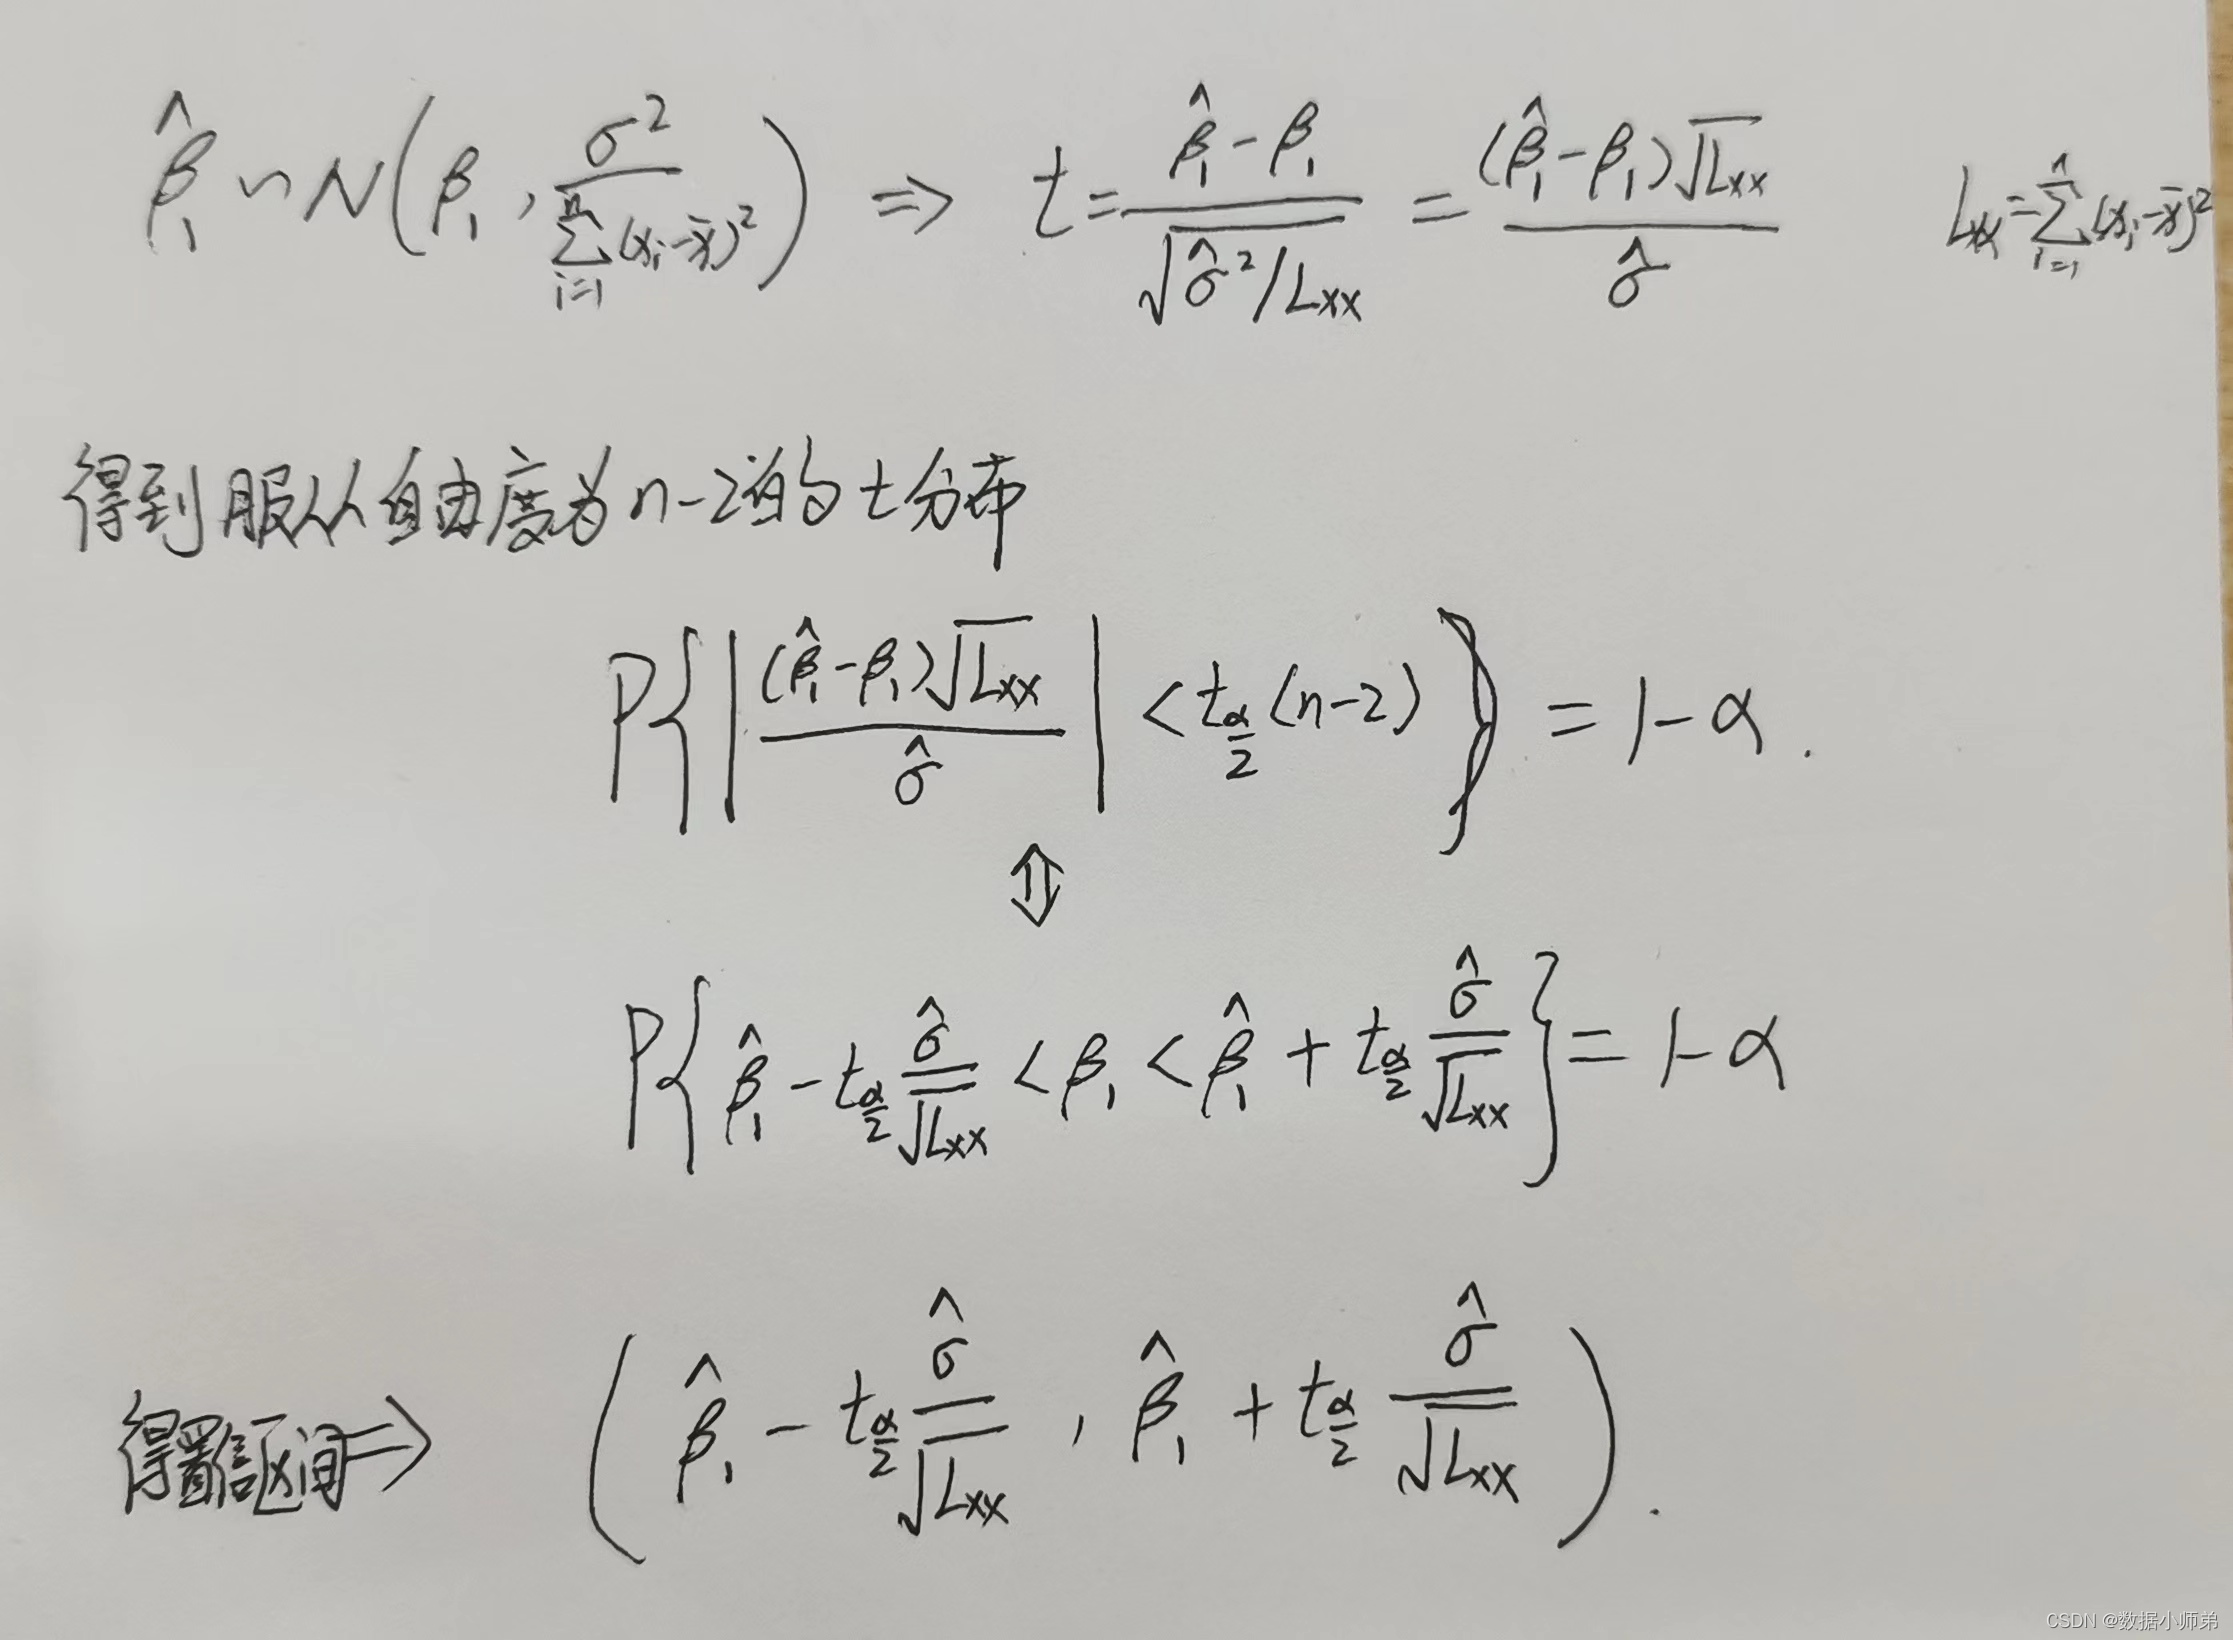 β̂₁ ~ N(β₁, σ² / Σ_{i=1}^{n}(xᵢ-x̄)²) ⇒ t = (β̂₁-β₁) / √(σ̂²/Lxx) = (β̂₁-β₁)√Lxx / σ̂    Lxx = Σ_{i=1}^{n}(xᵢ-x̄)²
得到服从自由度为n-2的t分布
P{|(β̂₁-β₁)√Lxx / σ̂| < t_{α/2}(n-2)} = 1-α.
⇕
P{β̂₁ - t_{α/2} σ̂/√Lxx < β₁ < β̂₁ + t_{α/2} σ̂/√Lxx} = 1-α
得置信区间⇒ (β̂₁ - t_{α/2} σ̂/√Lxx , β̂₁ + t_{α/2} σ̂/√Lxx).
CSDN @数据小师弟